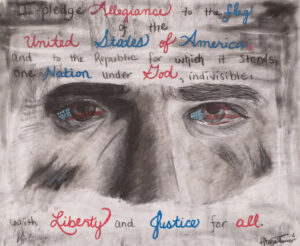 I pledge Allegiance to the flag
of the
United States of America
and to the Republic for which it stands,
one Nation under God, indivisible,
with Liberty and Justice for all.